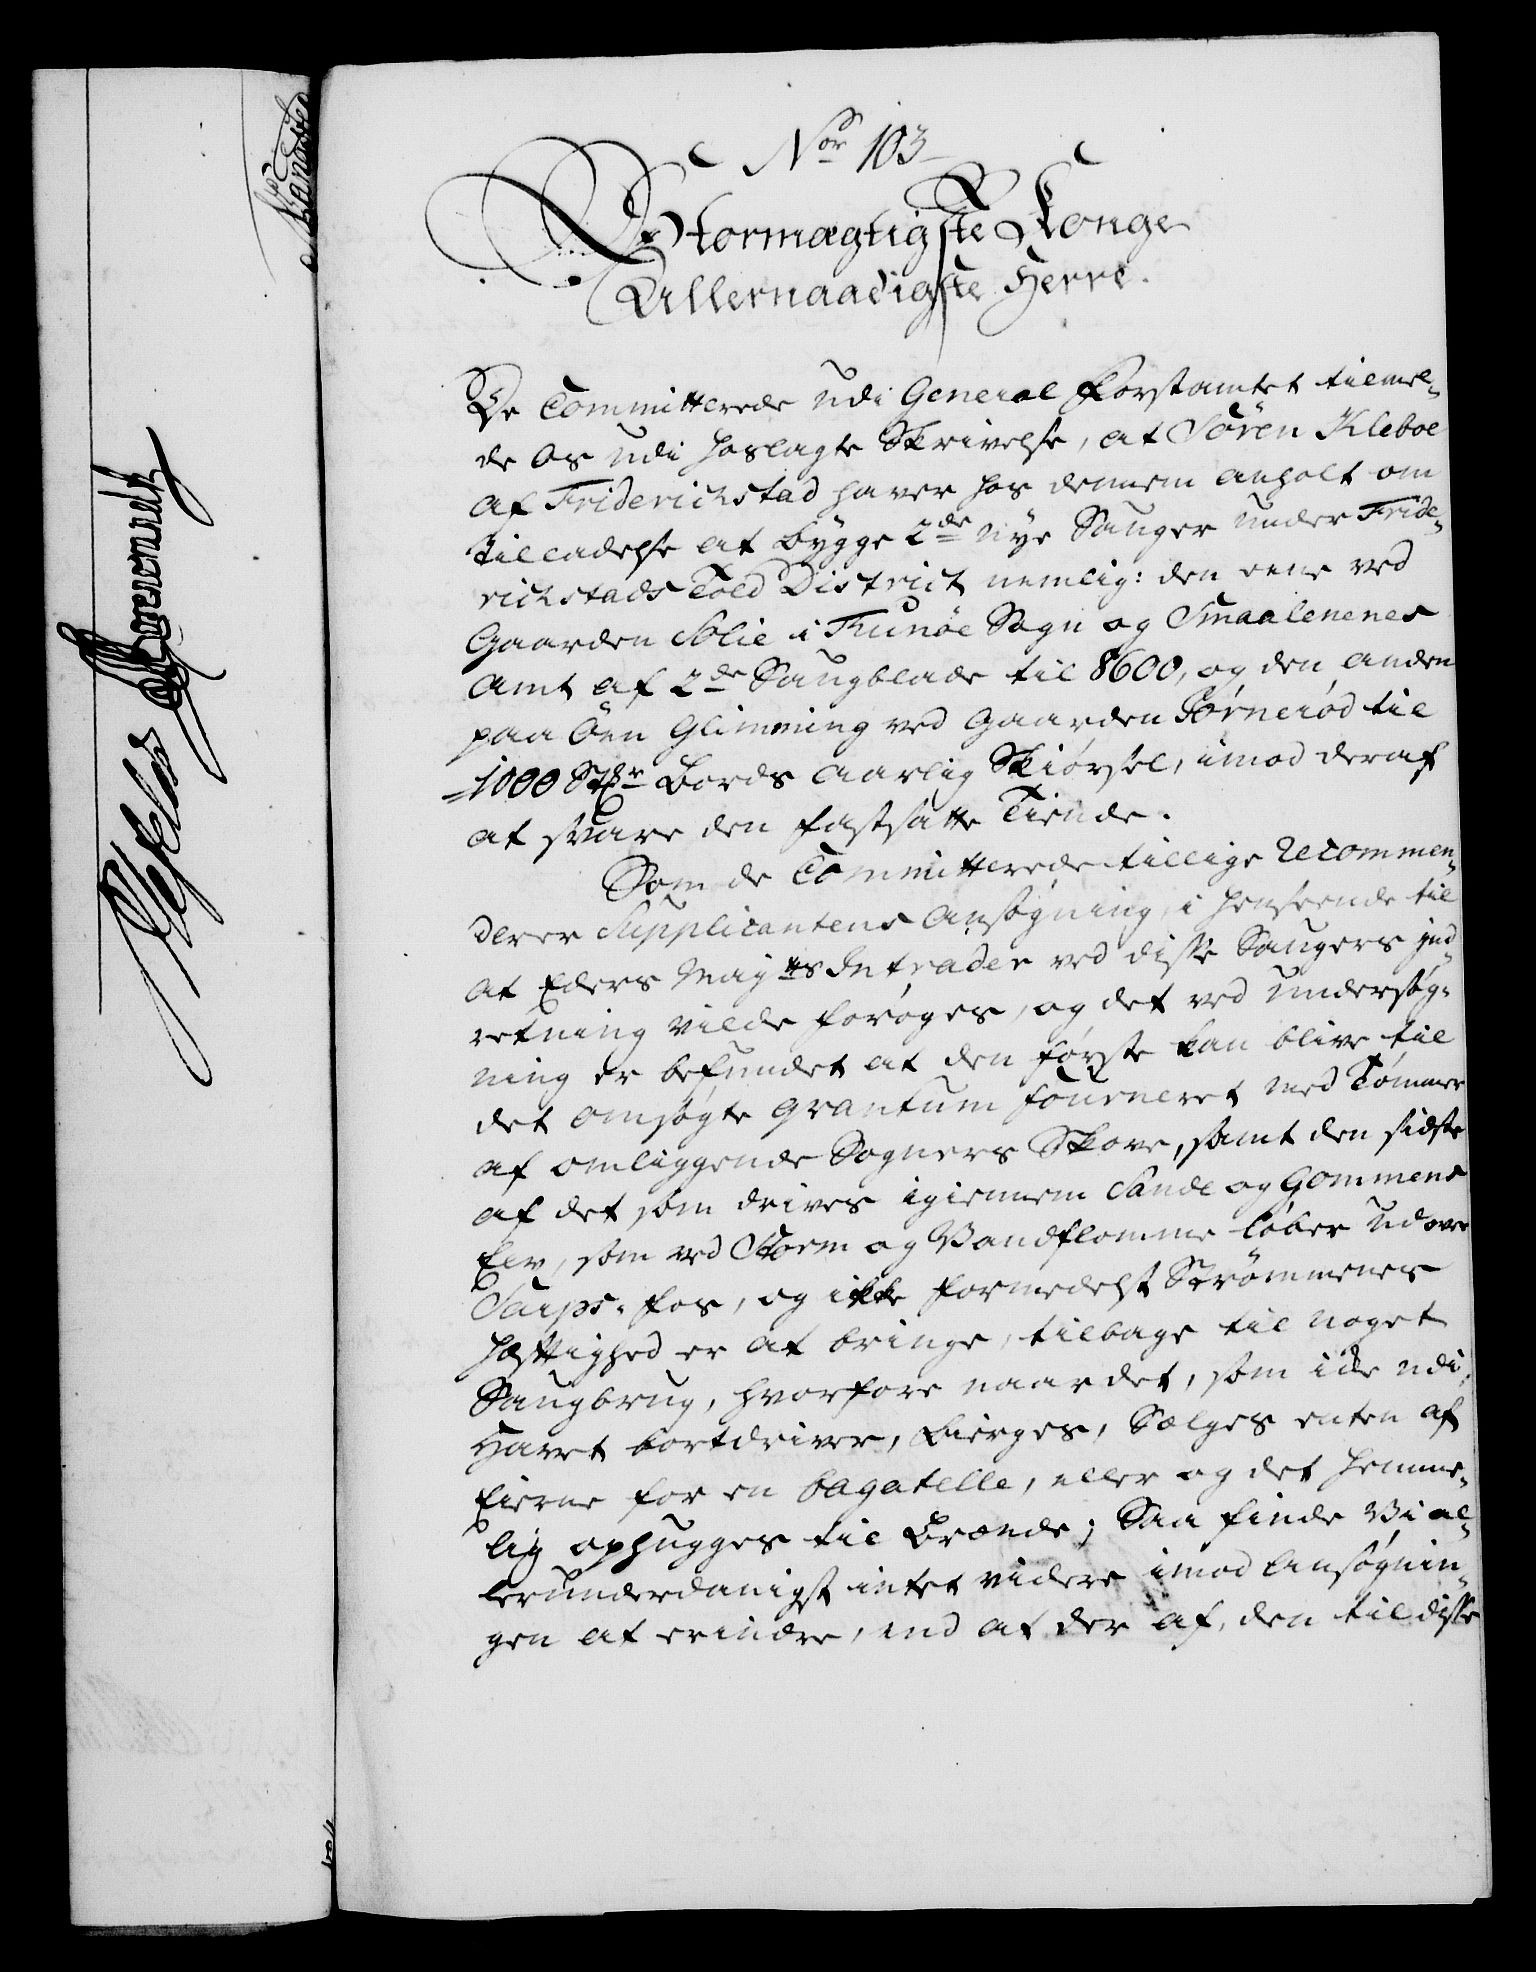 Nor 103
Stormægtigste Konge
Allernaadigste Herre.
De Committerede udi General Forstamtet tilmel-
de os udi hoslagte Skrivelse, at Søren Kleboe
af Friderichstad haver hos dennem anholt om
tilladelse at bygge 2de nye Sauger under Fride-
richstads Told District, nemlig: den eene ved
Gaarden Solie i Tunøe Sogn og Smaalenenes
Amt af 2de Saugblade til 8600, og den anden
paa Øen Glimming ved Gaarden Tørnerød til
1000 Stkr Bords aarlig Skiørsel, imod deraf
at svare den fastsatte Tiende.
Som de Committerede tillige recommen-
derer Supplicantens Ansøgning, i henseende til
at Eders Mayts Intrader ved disse Saugers ind-
retning vilde forøges, og det ved undersøg-
ning er befundet at den første kan blive til
det omsøgte qvantum fourneret med Tømmer
af omliggende Sogners Skove, samt den sidste
af det som drives igiennem Sande og Gommens
Elv, som ved Storm og Vandflomme løber ud over
Sarps-fos, og ikke formedelst Strømmenes
hæftighed er at bringe tilbage til noget
Saugbrug, hvorfore naar det, som icke udi
Havet bortdriver, bierges, Sælges enten af
Eierne for en bagatelle, eller og det hemme-
lig ophugges til Brænde; Saa finde Vi al-
lerunderdanigst intet videre imod Ansøgnin-
gen at erindre, end at der af, den til disse